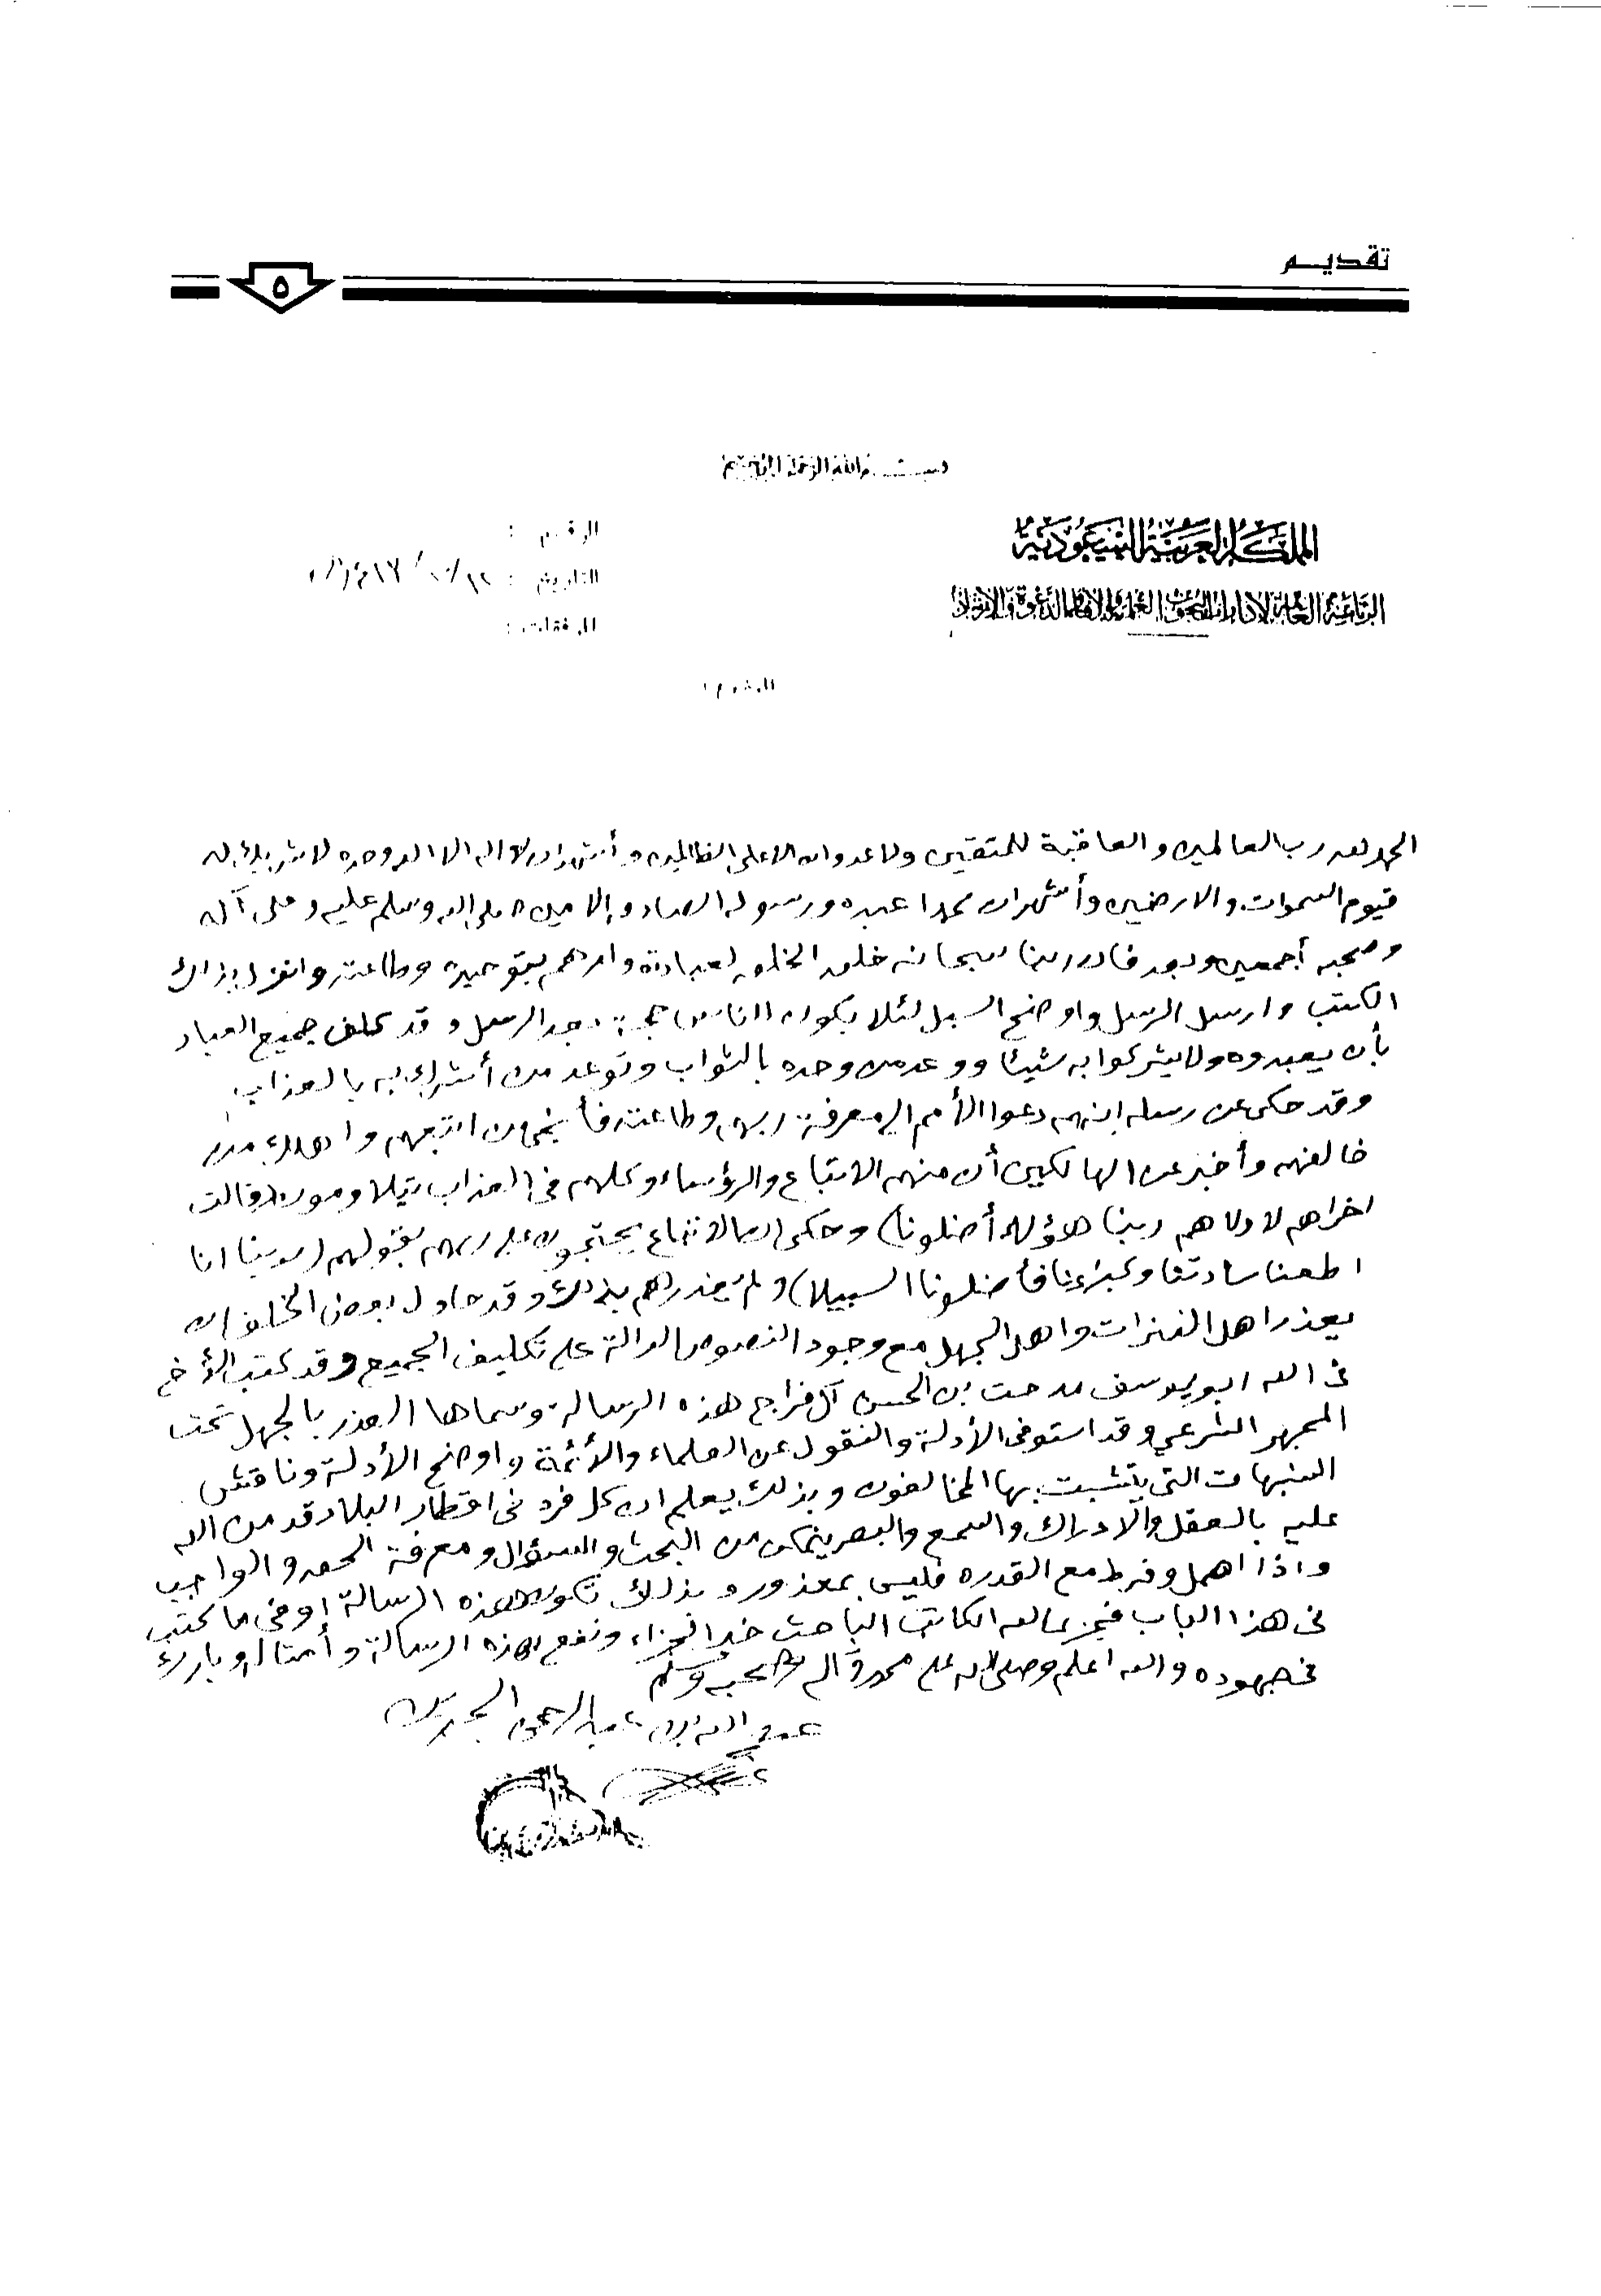 تقديم
٥
بسم الله الرحمن الرحيم
المملكة العربية السعودية
الرئاسة العامة لادارات البحوث العلمية والافتاء والدعوة والارشاد
الرقم :
التاريخ :
المرفقات :
الحمد لله رب العالمين والعاقبة للمتقين ولا عدوان الا على الظالمين وأشهد ان لا اله الا الله وحده لا شريك له
قيوم السموات والارضين وأشهد ان محمدا عبده ورسوله الصادق الامين صلى الله وسلم عليه وعلى آله
وصحبه أجمعين وبعد فان ربنا سبحانه خلق الخلق لعبادته وامرهم بتوحيده وطاعته وانزل بذلك
الكتب وارسل الرسل واوضح السبل لئلا يكون للناس حجة بعد الرسل وقد كلف جميع العباد
بأن يعبدوه ولا يشركوا به شيئا ووعد من وحده بالثواب وتوعد من أشرك به بالعذاب
وقد حكى عن رسله انهم دعوا الأمم الى معرفة ربهم وطاعته فأنجى من اتبعهم واهلك من
خالفهم وأخبر عن الهالكين أن منهم الاتباع والرؤساء وكلهم في العذاب يتلاومون (قالت
اخراهم لاولاهم ربنا هؤلاء أضلونا) وحكى ان الاتباع يحتجون على ربهم بقولهم (ربنا انا
اطعنا سادتنا وكبراءنا فأضلونا السبيلا) ولم يعذرهم بذلك وقد حاول بعض الخلف ان
يعذر اهل الفترات واهل الجهل مع وجود النصوص الدالة على تكليف الجميع وقد كتب الأخ
في الله ابو يوسف مدحت بن الحسن آل فراج هذه الرسالة وسماها العذر بالجهل تحت
المجهر الشرعي وقد استوفى الأدلة والنقول عن العلماء والأئمة واوضح الأدلة وناقش
الشبهات التي يتشبث بها المخالفون وبذلك يعلم ان كل فرد في اقطار البلاد قد من الله
عليه بالعقل والادراك والسمع والبصر يتمكن من البحث والسؤال ومعرفة الحق والواجب
واذا اهمل وفرط مع القدره فليس بمعذور وبذلك تكون هذه الرسالة اوفى ما كتب
في هذا الباب فجزى الله الكاتب الباحث خير الجزاء ونفع بهذه الرسالة وأمثالها وبارك
في جهوده والله اعلم وصلى الله على محمد وآله وصحبه وسلم
عبد الله بن عبد الرحمن الجبرين